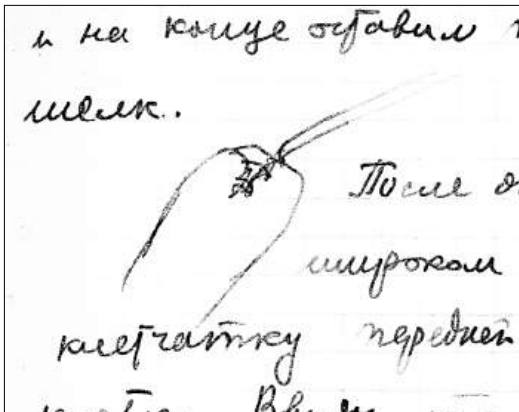 и на конце оставим
шелк.
После
широком
клетчатку передней